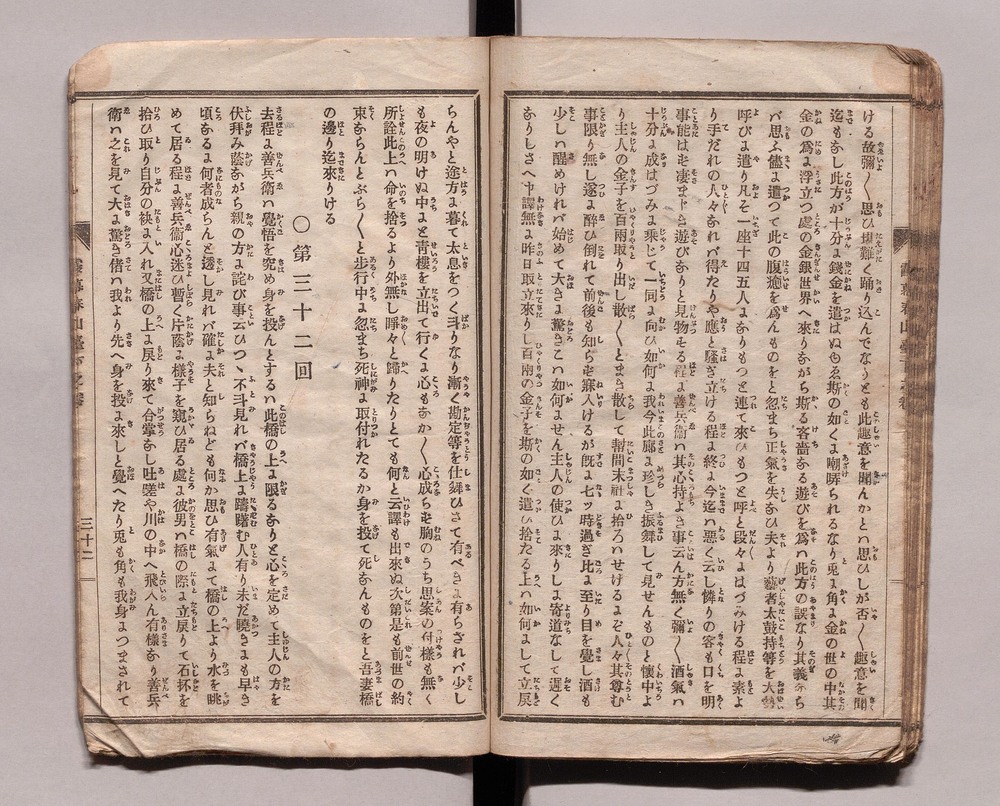 ける故彌〱思ひ堪難く踊り込んでなりとも此趣意を聞んかとハ思ひしが否〱趣意を聞
迄もなし此方が十分ょ錢金を遣はぬゆゑ斯の如くょ嘲哢られるなり兎ょ角ょ金の世の中其
金の爲ょ浮立つ處の金銀世界へ來りながら斯る吝嗇なる遊びを爲ハ此方の誤なり其義なら
バ思ふ儘ょ遣つて此の腹癒を爲んものをと忽まち正氣を失なひ夫より藝者太鼓持等を大勢
呼びょ遣り凡そ一座十四五人ょなりもつと連て來ひもつと呼と段々ょはづみける程ょ素よ
り手だれの人々なれバ得たりや應と騒ぎ立ける程ょ終ょ今迄ハ悪く云し隣りの客も口を明
事能はも凄まドき遊びなりと見物もる程ょ善兵衞ハ其心持よき事云ん方無く彌〱酒氣ハ
十分ょ成はづみょ乘じて一同ょ向ひ如何ょ我今此廊ょ珍しき振舞して見せんものと懷中よ
り主人の金子を百兩取り出し散〱とまき散して幇間末社ょ拾ろハせけるょぞ人々其尊む
事限り無し遂ょ醉ひ倒れて前後も知らも寐入けるが既ょ七ッ時過ぎ比ょ至り目を覺し酒も
少し醒めけれバ始めて大きょ驚きこハ如何ょせん主人の使ひょ來りしょ寄道なして遲く
なりしさへ申譯無ょ昨日取立來りし百兩の金子を斯の如く遣ひ捨たる上ハ如何ょして立戻
らんやと途方ょ暮て太息をつく斗りなり漸く勘定等を仕舞ひさて有べきょ有らざれバ少し
も夜の明けぬ中ょと青樓を立出て行くょ心もなか〱心成らも胸のうち思案の付樣も無く
所詮此上ハ命を捨るより外無し睜々と歸りたりとても何と云譯も出來ぬ次第是も前世の約
束ならんとぶら〱と歩行中ょ忽まち死神ょ取付れたるか身を投て死なんものをと吾妻橋
の邊り迄來りける
○第三十二回
去程ょ善兵衞ハ覺悟を究め身を投んとするハ此橋の上ょ限るなりと心を定めて主人の方を
伏拜み蔭ながら親の方ょ詫び事云ひつゝ不斗見れバ橋上ょ躊躇む人有り未だ曉きょも早き
頃なるょ何者成らんと透し見れバ確ょ夫と知らねども何か思ひ有氣ょて橋の上より水を眺
めて居る程ょ善兵衞心迷ひ暫く片蔭ょ樣子を窺ひ居る處ょ彼男ハ橋の際ょ立戻りて石抔を
拾ひ取り自分の袂ょ入れ又橋の上ょ戻り來て合掌なし吐嗟や川の中へ飛入ん有樣なり善兵
衞ハ之を見て大ょ驚き偖ハ我より先へ身を投ょ來しと覺へたり兎も角も我身ょつまされて
三十二